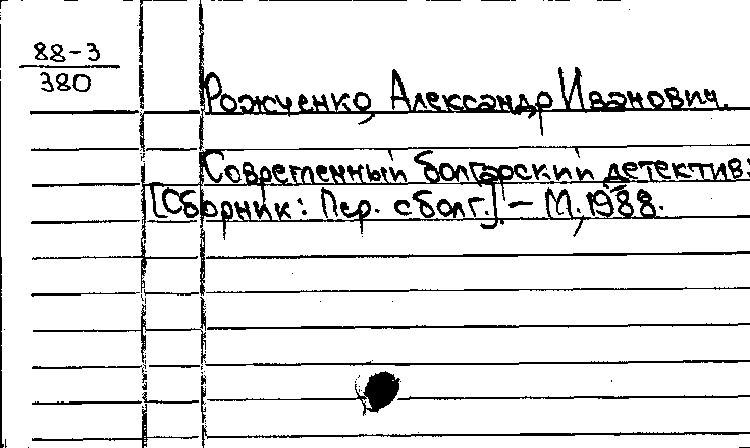 88-3
380
Рожченко, Александр Иванович.
Современный болгарский детектив:
[Сборник: Пер. с болг.]. — М., 1988.